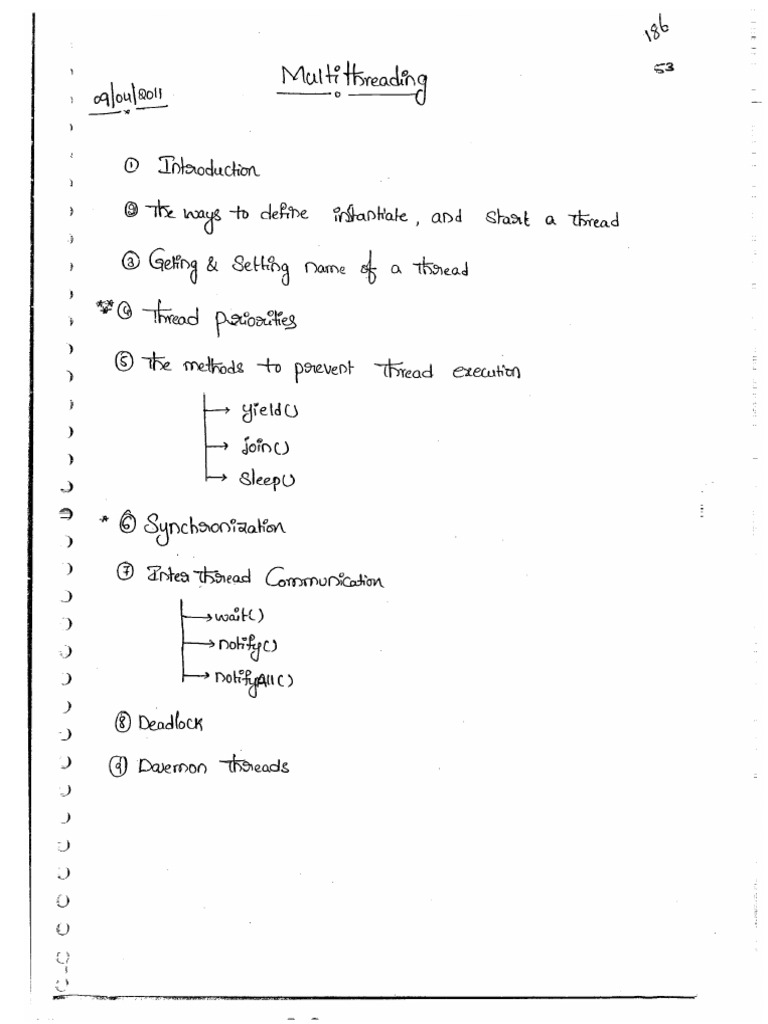 186
53
Multithreading
09/04/2011
① Introduction
② The ways to define instantiate, and start a thread
③ Geting & Setting name of a thread
** ④ Thread priorities
⑤ The methods to prevent Thread execution
→ yield()
→ join()
→ sleep()
* ⑥ Synchronization
⑦ Inter Thread Communication
→ wait()
→ notify()
→ notifyAll()
⑧ Deadlock
⑨ Daemon Threads